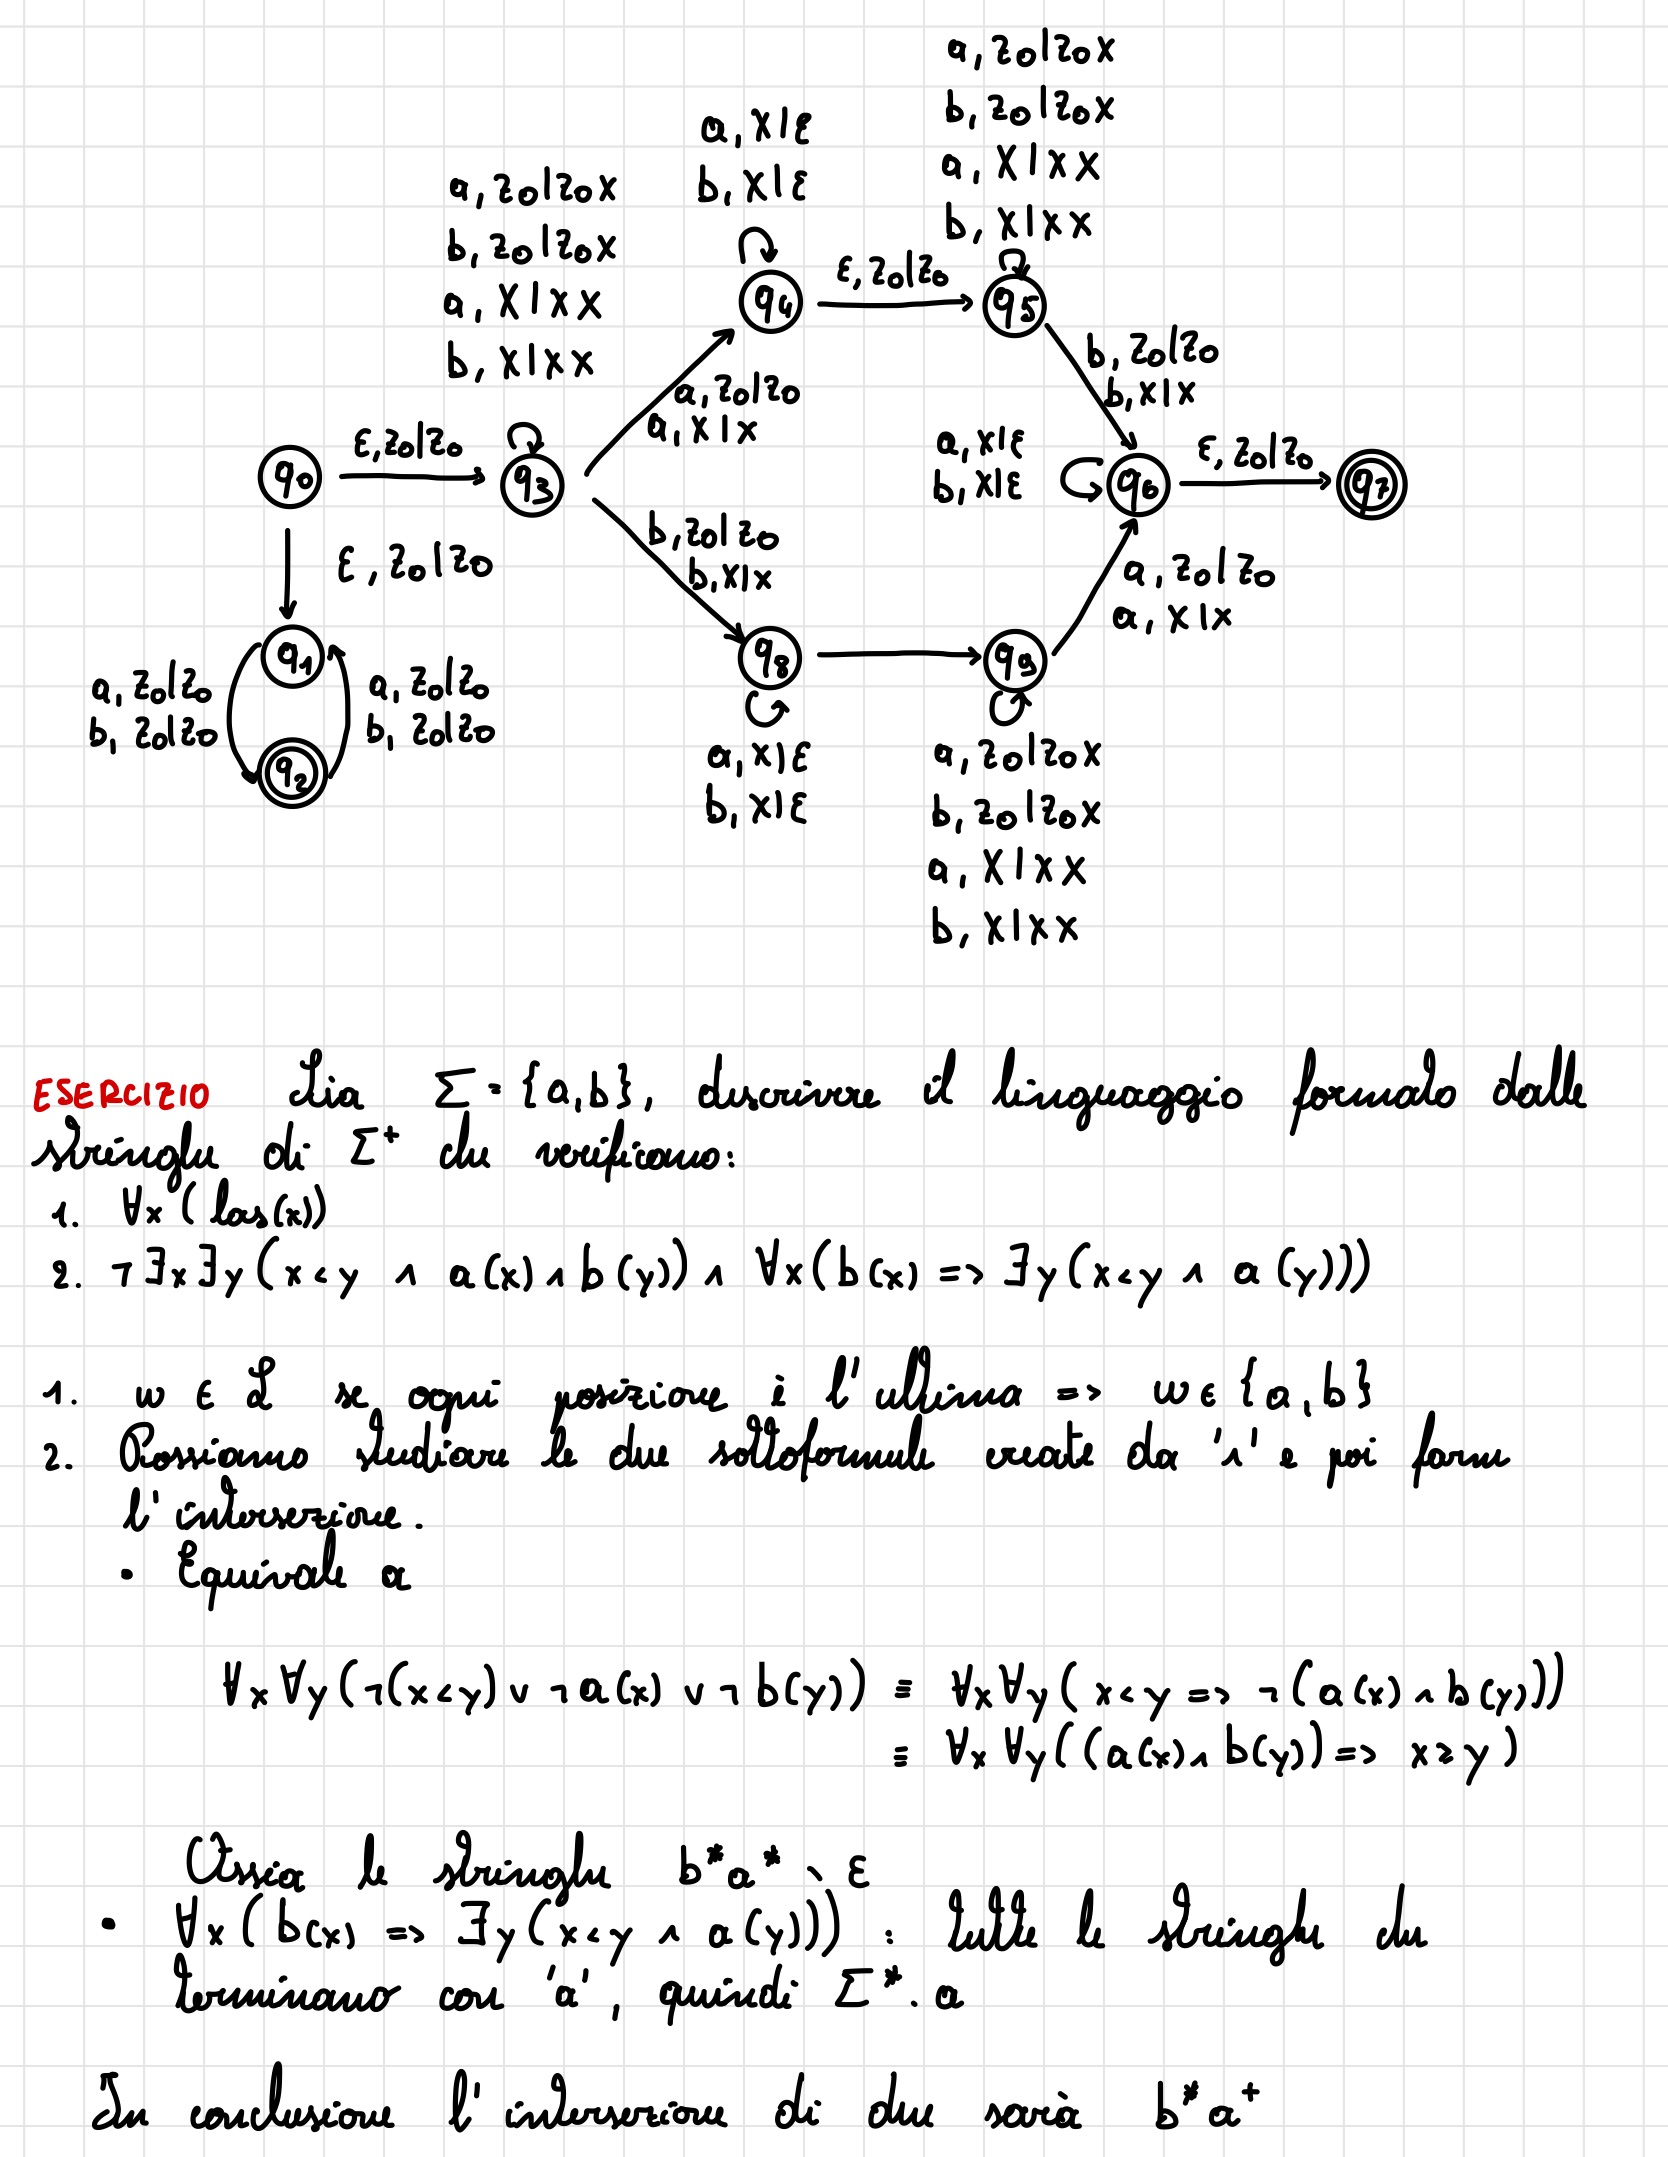 a, Z₀|Z₀X
b, Z₀|Z₀X
a, X|XX
b, X|XX
a, X|ε
b, X|ε
a, Z₀|Z₀X
b, Z₀|Z₀X
a, X|XX
b, X|XX
q₄
ε, Z₀|Z₀
q₅
b, Z₀|Z₀
b, X|X
a, Z₀|Z₀
a, X|X
q₀
ε, Z₀|Z₀
q₃
a, X|ε
b, X|ε
q₆
ε, Z₀|Z₀
q₇
b, Z₀|Z₀
b, X|X
ε, Z₀|Z₀
a, Z₀|Z₀
a, X|X
q₁
q₈
q₉
a, Z₀|Z₀
b, Z₀|Z₀
a, Z₀|Z₀
b, Z₀|Z₀
q₂
a, X|ε
b, X|ε
a, Z₀|Z₀X
b, Z₀|Z₀X
a, X|XX
b, X|XX
ESERCIZIO Sia Σ = {a,b}, descrivere il linguaggio formato dalle
stringhe di Σ⁺ che verificano:
1. ∀x (las(x))
2. ¬∃x∃y(x<y ∧ a(x)∧b(y)) ∧ ∀x(b(x) => ∃y(x<y ∧ a(y)))
1. w ∈ L se ogni posizione è l'ultima => w ∈ {a,b}
2. Possiamo studiare le due sottoformule create da '∧' e poi farne
l'intersezione.
• Equivale a
∀x∀y(¬(x<y) ∨ ¬a(x) ∨ ¬b(y)) ≡ ∀x∀y(x<y => ¬(a(x)∧b(y)))
≡ ∀x∀y((a(x)∧b(y)) => x≥y)
Ossia le stringhe b*a* \ ε
• ∀x(b(x) => ∃y(x<y ∧ a(y))) : tutte le stringhe che
terminano con 'a', quindi Σ*.a
In conclusione l'intersezione di due sarà b*a⁺